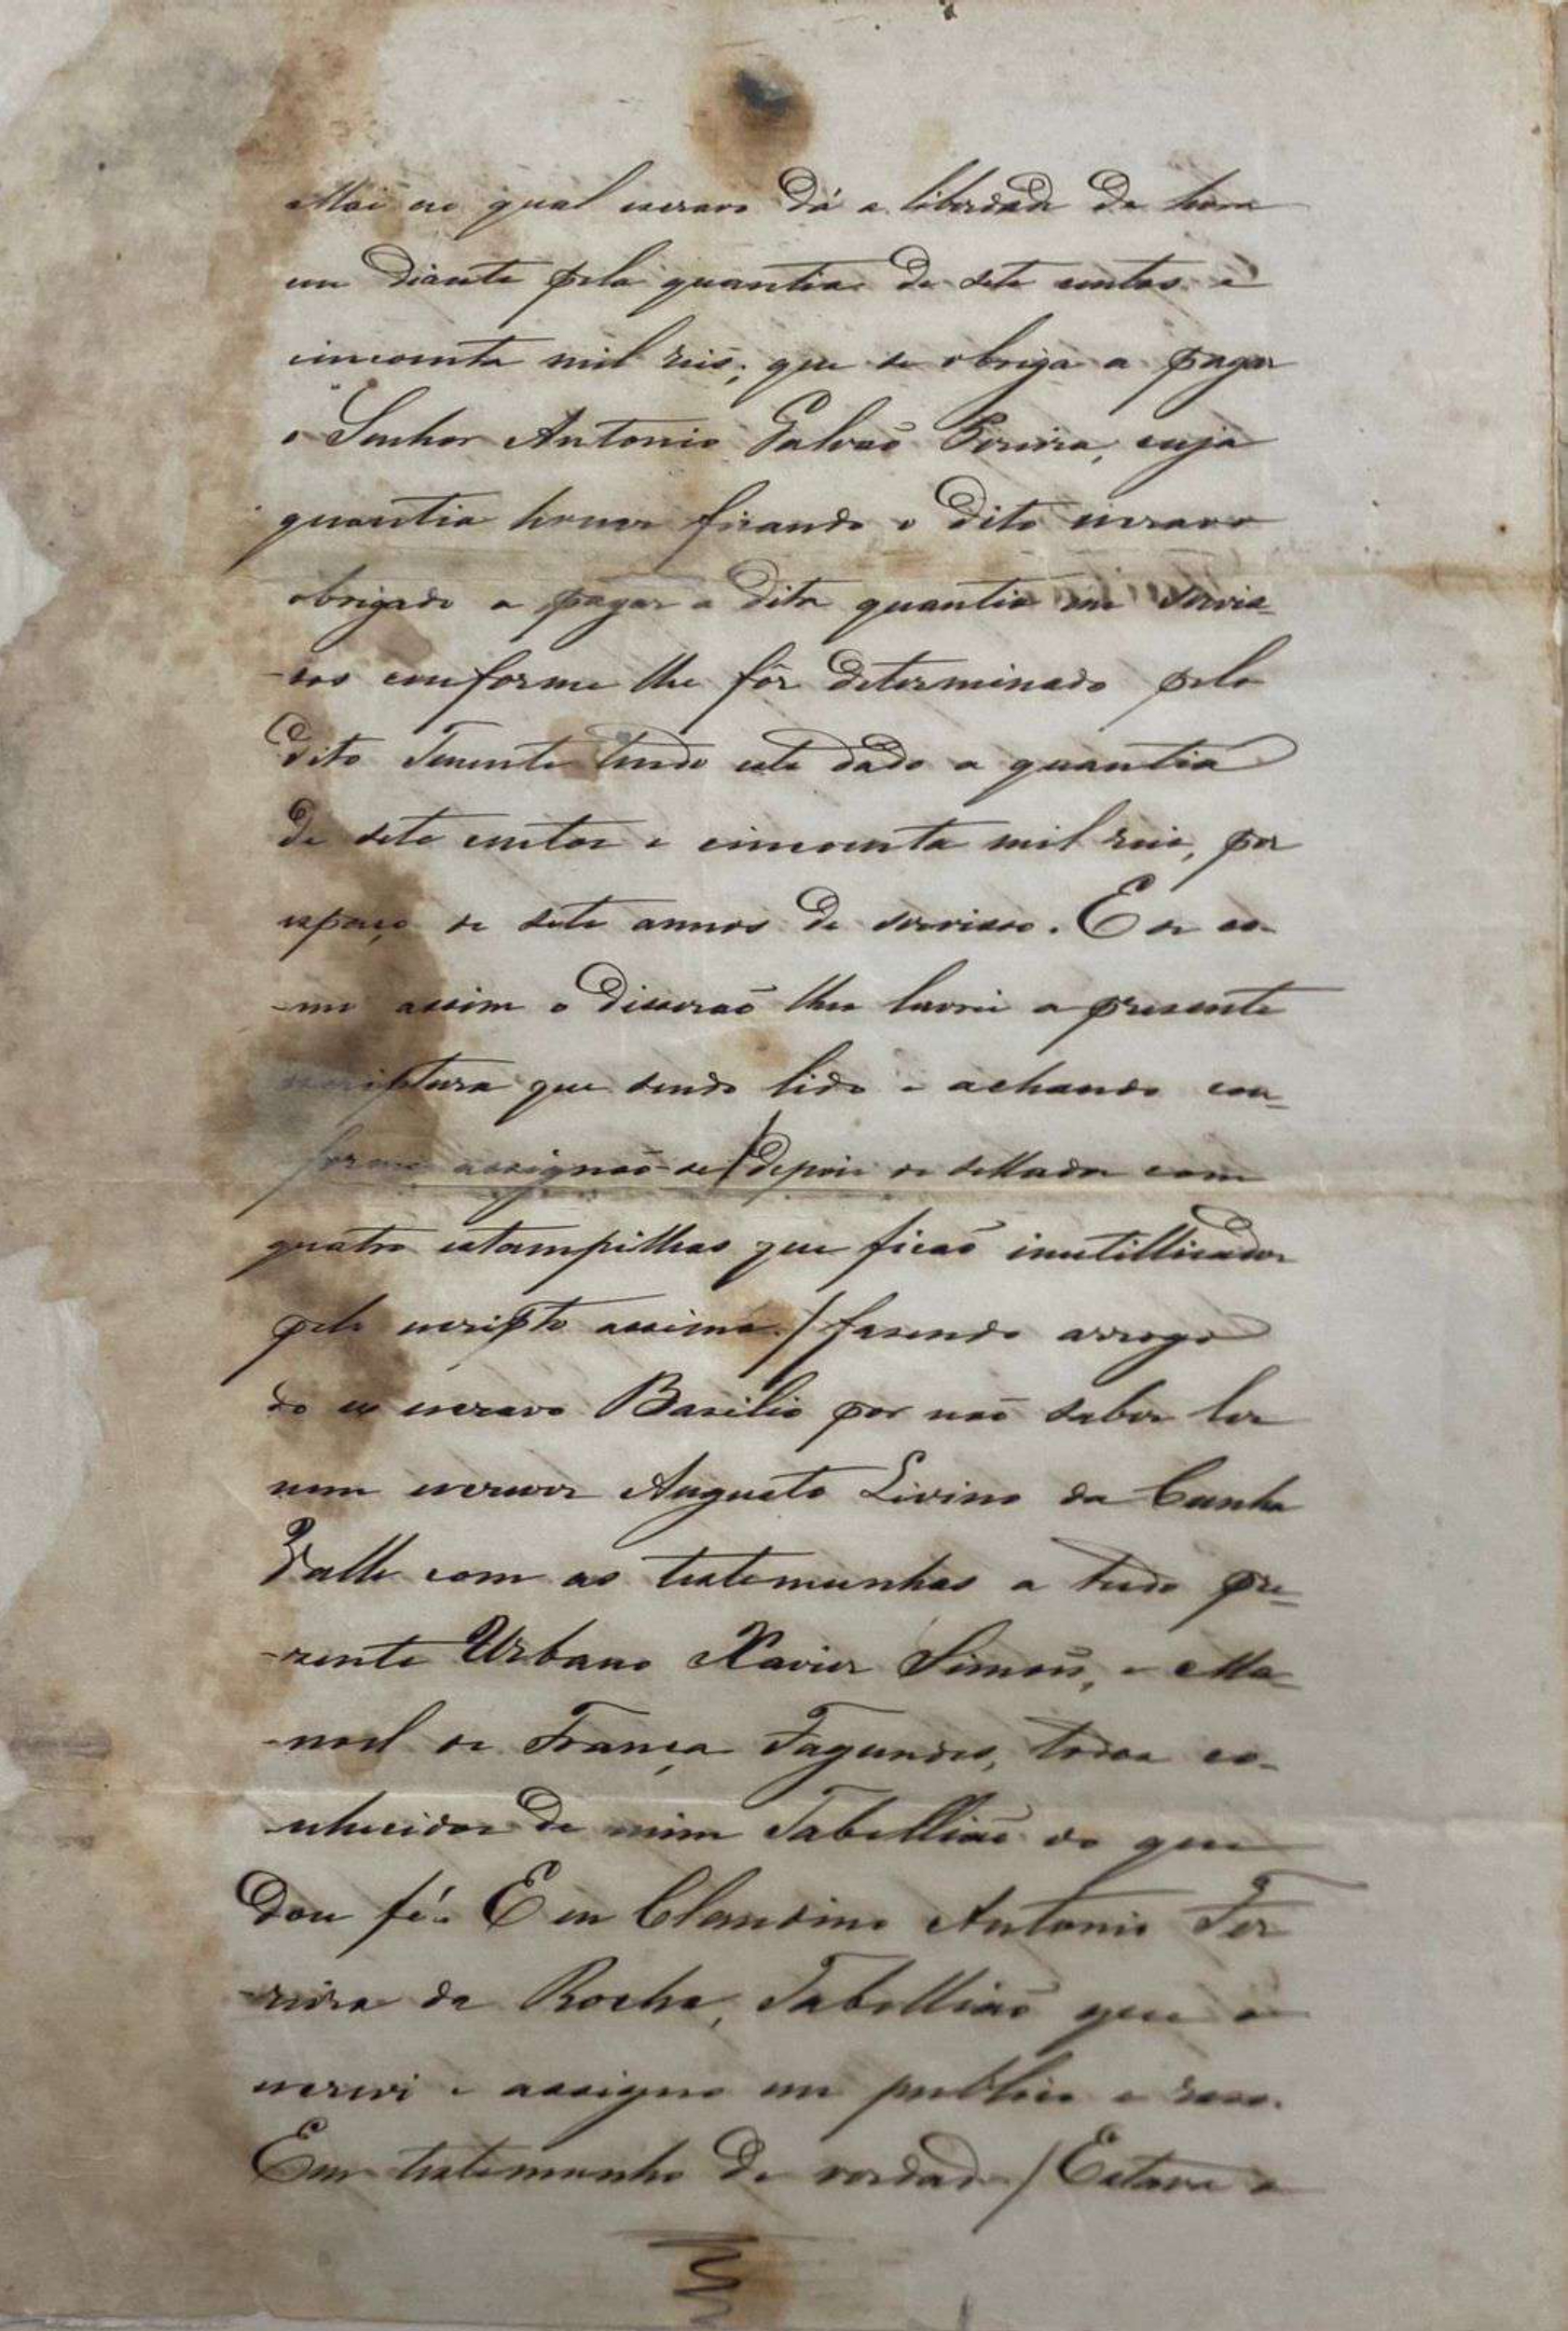 Mãi ao qual escravo dá a liberdade de hora
em diante pela quantia de sete centos e
cincoenta mil reis; que se obriga a pagar
o Senhor Antonio Galvaõ Pereira, cuja
quantia houver ficando o dito escravo
obrigado a pagar a dita quantia em servis-
-sos conforme lhe fôr determinado pelo
dito Tenente tendo este dado a quantia
de sete centos e cincoenta mil reis, por
espaço de sete annos de servisso. E de co-
-mo assim o disseraõ lhes lavrei a presente
escriptura que sendo lido e achando con-
forme assignaõ-se / depois de sellada com
quatro estampilhas que ficaõ inutillisadas
pelo escripto assima / fasendo arrogo
do escravo Basilio por naõ saber ler
nem escrever Augusto Livino da Cunha
Valle com as testemunhas a tudo pre-
-zente Urbano Xavier Simoẽs, e Ma-
-noel de França Fagundes, todos co-
-nhecidos de mim Tabelliaõ do que
Dou fé. E eu Claudino Antonio Fer
-reira da Rocha, Tabelliaõ que o
escrevi e assigno em publico e raso.
Em testemunho de verdade / Estava o